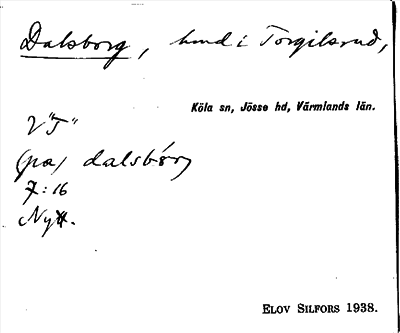 Dalsborg, hmd i Torgilsrud,
Köla sn, Jösse hd, Värmlands län.
V "T"
(pa) dalsbórj
7:16
Nytt.
ELOV SILFORS 1938.